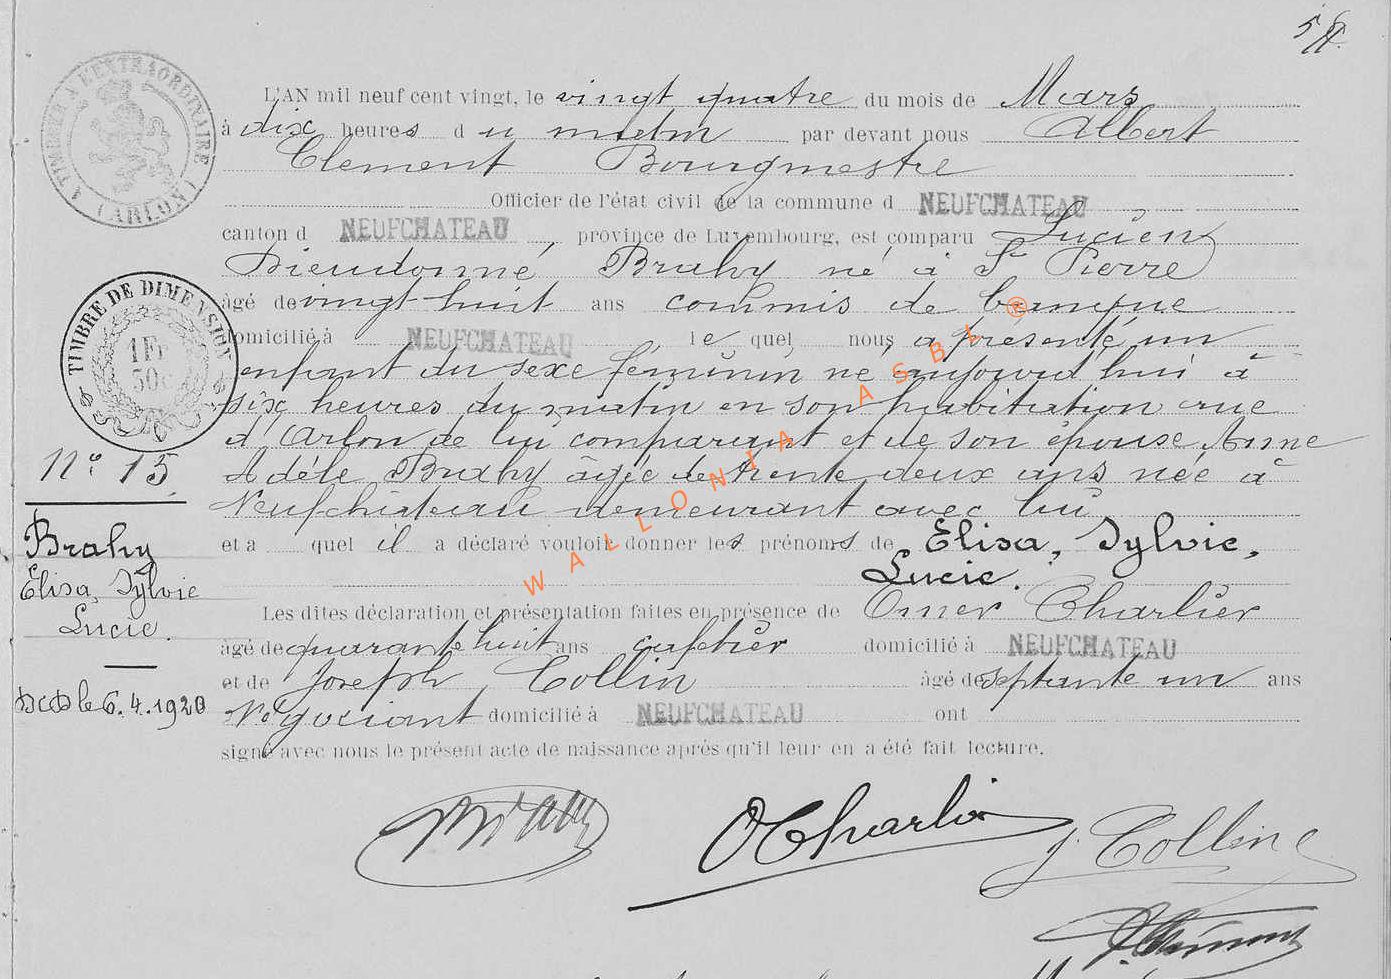 L'AN mil neuf cent vingt, le vingt quatre du mois de Mars
à dix heures du matin par devant nous Albert
Clement Bourgmestre
Officier de l'état civil de la commune d NEUFCHATEAU
canton d NEUFCHATEAU province de Luxembourg, est comparu Lucien
Dieudonné Brahy né à St Pierre
âgé de vingt huit ans commis de banque
domicilié à NEUFCHATEAU lequel nous a présenté un
enfant du sexe féminin né aujourd'hui à
six heures du matin en son habitation rue
d'Arlon de lui comparant et de son épouse Anne
Adèle Brahy âgée de trente deux ans née à
Neufchateau demeurant avec lui
et a quel il a déclaré vouloir donner les prénoms de Elisa, Sylvie,
Lucie.
Les dites déclaration et présentation faites en présence de Omer Charlier
âgé de quarante huit ans cafetier domicilié à NEUFCHATEAU
et de Joseph Collin âgé de septante un ans
Négociant domicilié à NEUFCHATEAU ont
signé avec nous le présent acte de naissance après qu'il leur en a été fait lecture.
Brahy
O Charlier
J. Collin
A. Clement
TIMBRE A L'EXTRAORDINAIRE
(ARLON)
TIMBRE DE DIMENSION
1Fr
50c
N° 15
Brahy
Elisa, Sylvie
Lucie.
le 6.4.1920
WALLONIA ASBL ®